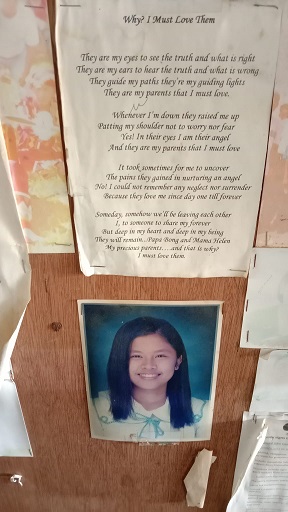 Why? I Must Love Them
They are my eyes to see the truth and what is right
They are my ears to hear the truth and what is wrong
They guide my paths they're my guiding lights
They are my parents that I must love.
Whenever I'm down they raised me up
Patting my shoulder not to worry nor fear
Yes! In their eyes I am their angel
And they are my parents that I must love
It took sometimes for me to uncover
The pains they gained in nurturing an angel
No! I could not remember any neglect nor surrender
Because they love me since day one till forever
Someday, somehow we'll be leaving each other
I, to someone to share my forever
But deep in my heart and deep in my being
They will remain...Papa Bong and Mama Helen
My precious parents....and that is why?
I must love them.